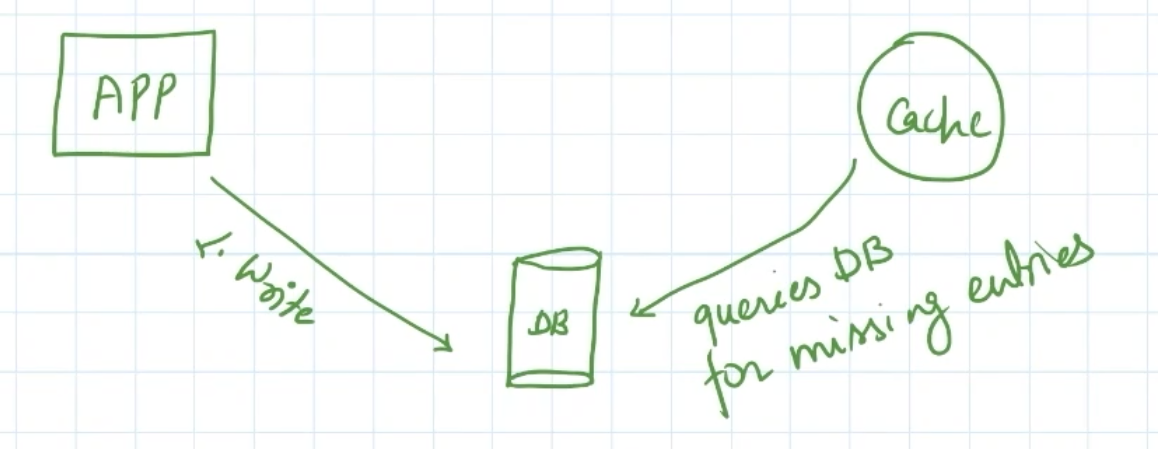 APP
Cache
1. Write
DB
queries DB
for missing entries